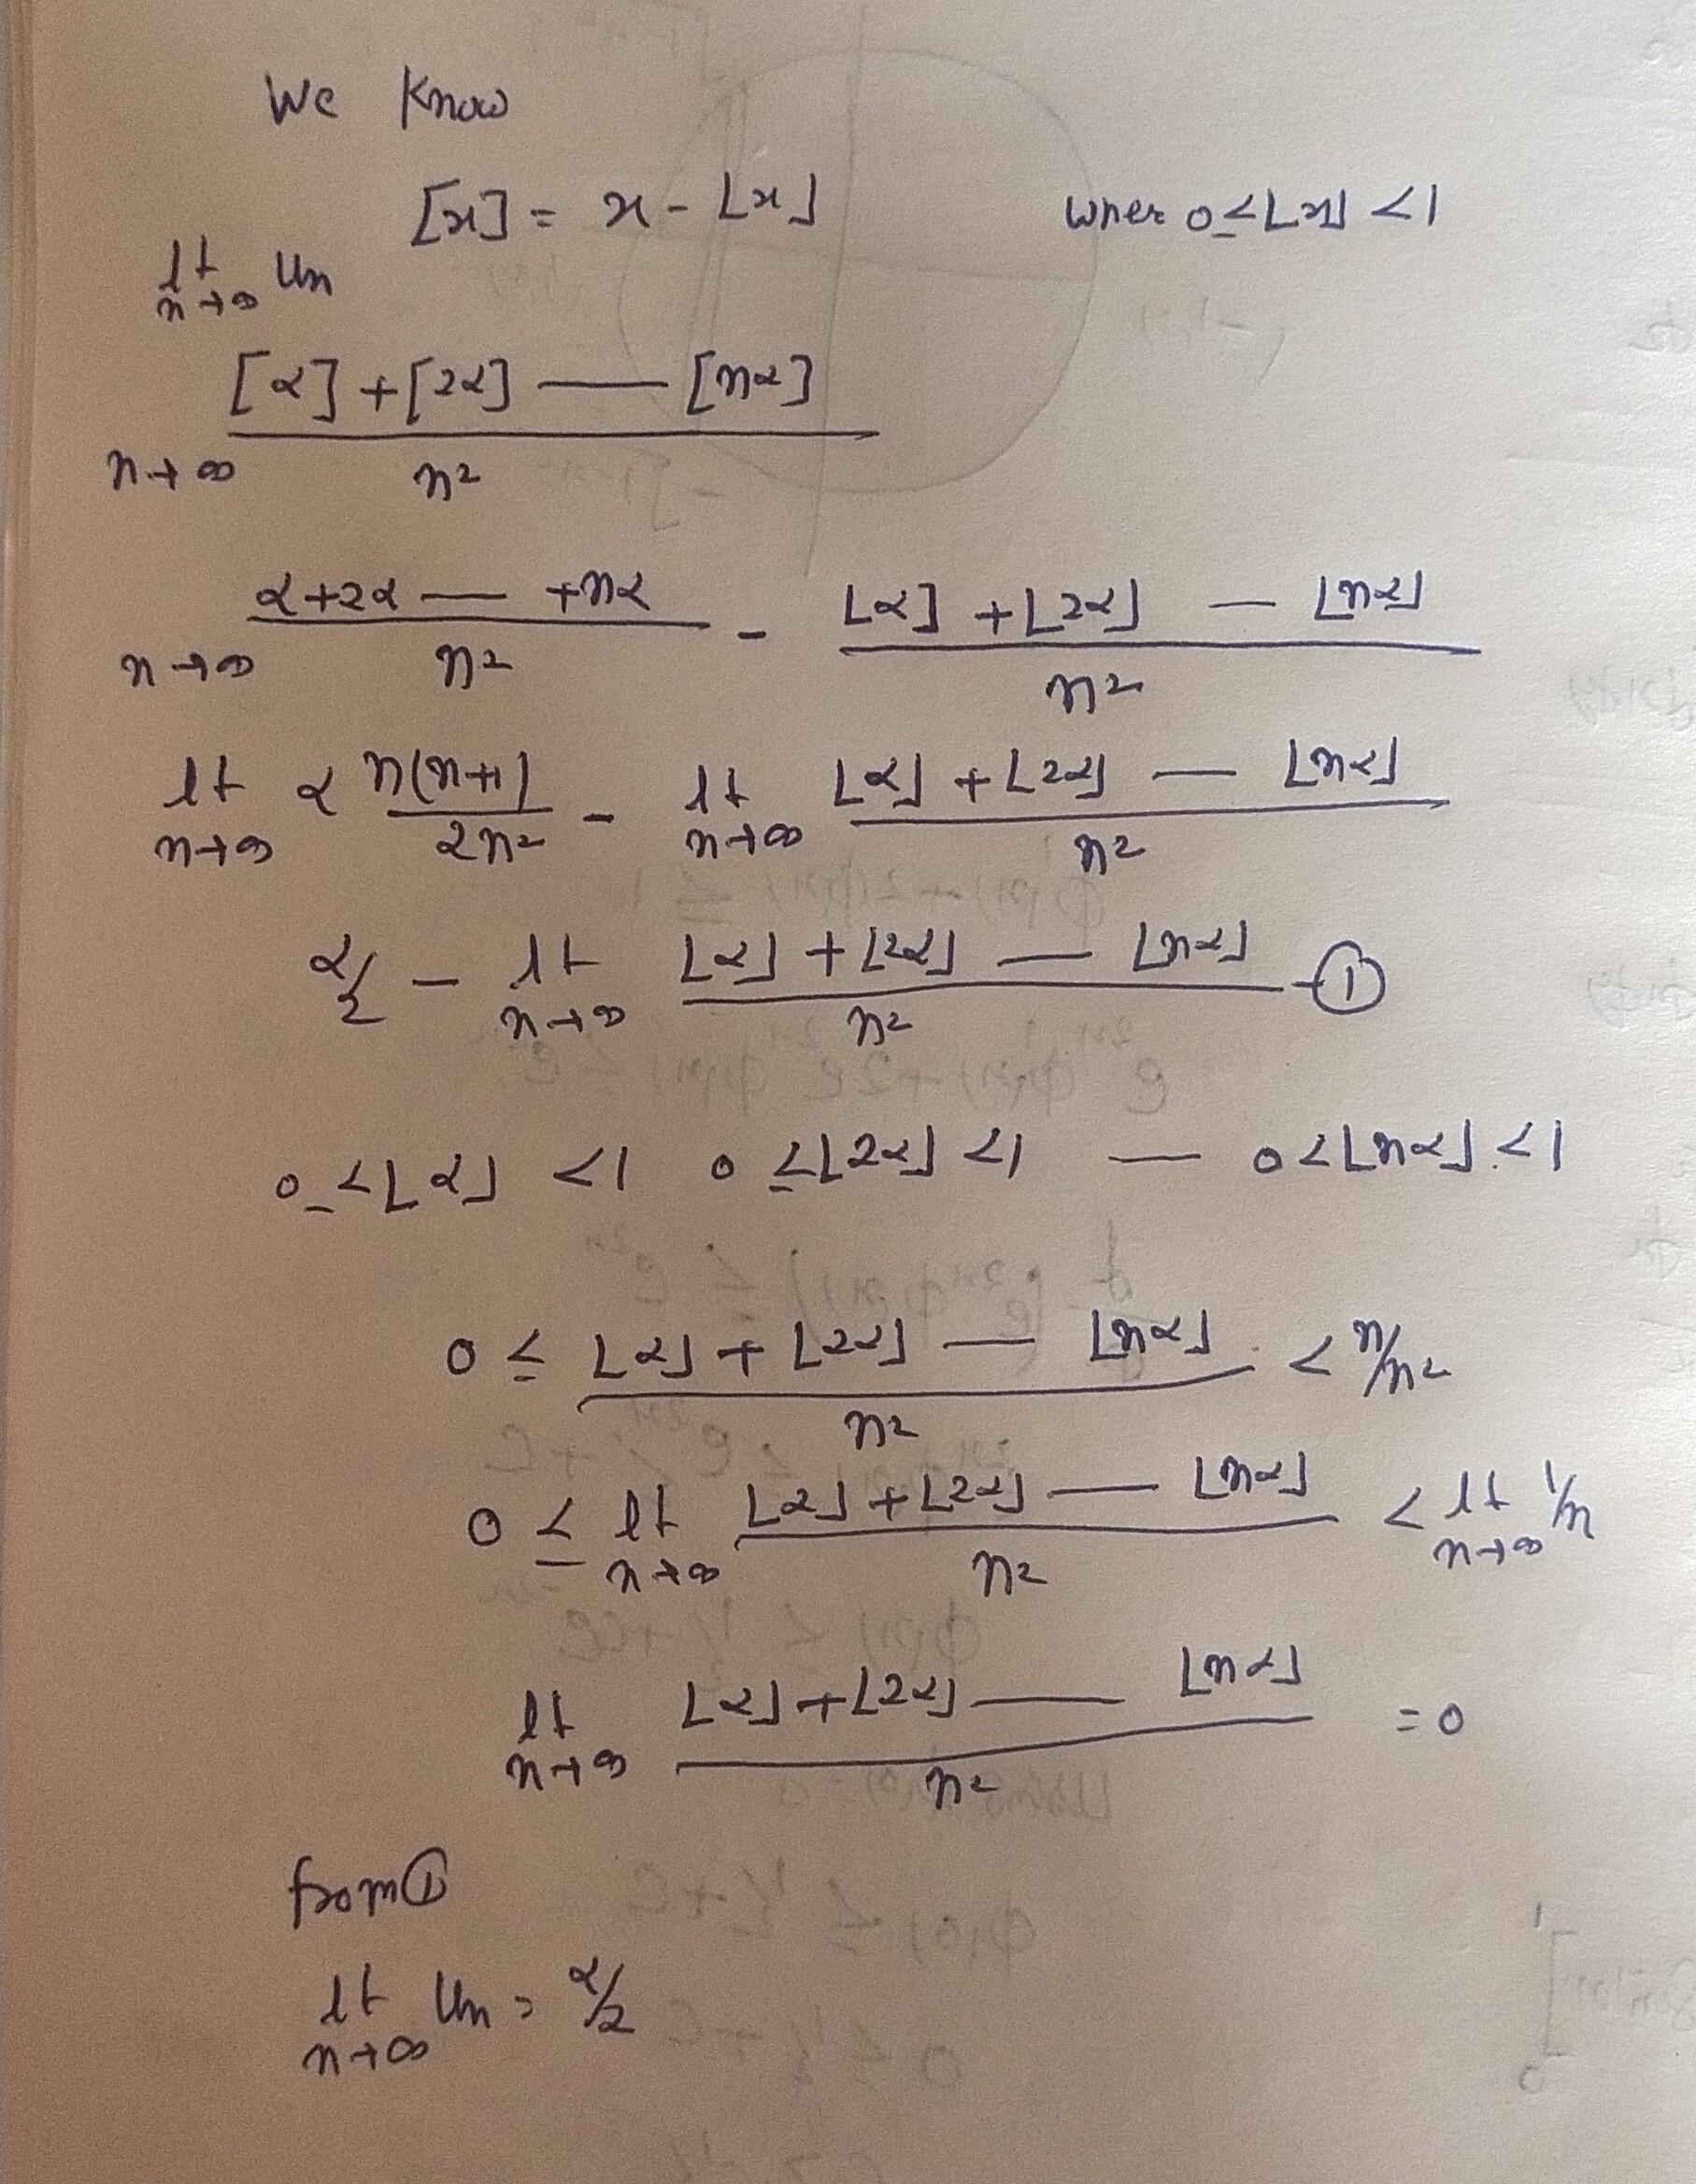 We Know
[x] = x - ⌊x⌋ wher 0 ≤ ⌊x⌋ < 1
lt n→∞ Un
n→∞ [α] + [2α] — [nα] / n²
n→∞ α + 2α — + nα / n² - ⌊α] + ⌊2α⌋ — ⌊nα⌋ / n²
lt n→∞ α n(n+1) / 2n² - lt n→∞ ⌊α⌋ + ⌊2α⌋ — ⌊nα⌋ / n²
α/2 - lt n→∞ ⌊α⌋ + ⌊2α⌋ — ⌊nα⌋ / n² - ①
0 ≤ ⌊α⌋ < 1 0 ≤ ⌊2α⌋ < 1 — 0 < ⌊nα⌋ < 1
0 ≤ ⌊α⌋ + ⌊2α⌋ — ⌊nα⌋ / n² < n/n²
0 ≤ lt n→∞ ⌊α⌋ + ⌊2α⌋ — ⌊nα⌋ / n² < lt n→∞ 1/n
lt n→∞ ⌊α⌋ + ⌊2α⌋ — ⌊nα⌋ / n² = 0
from ①
lt n→∞ Un = α/2